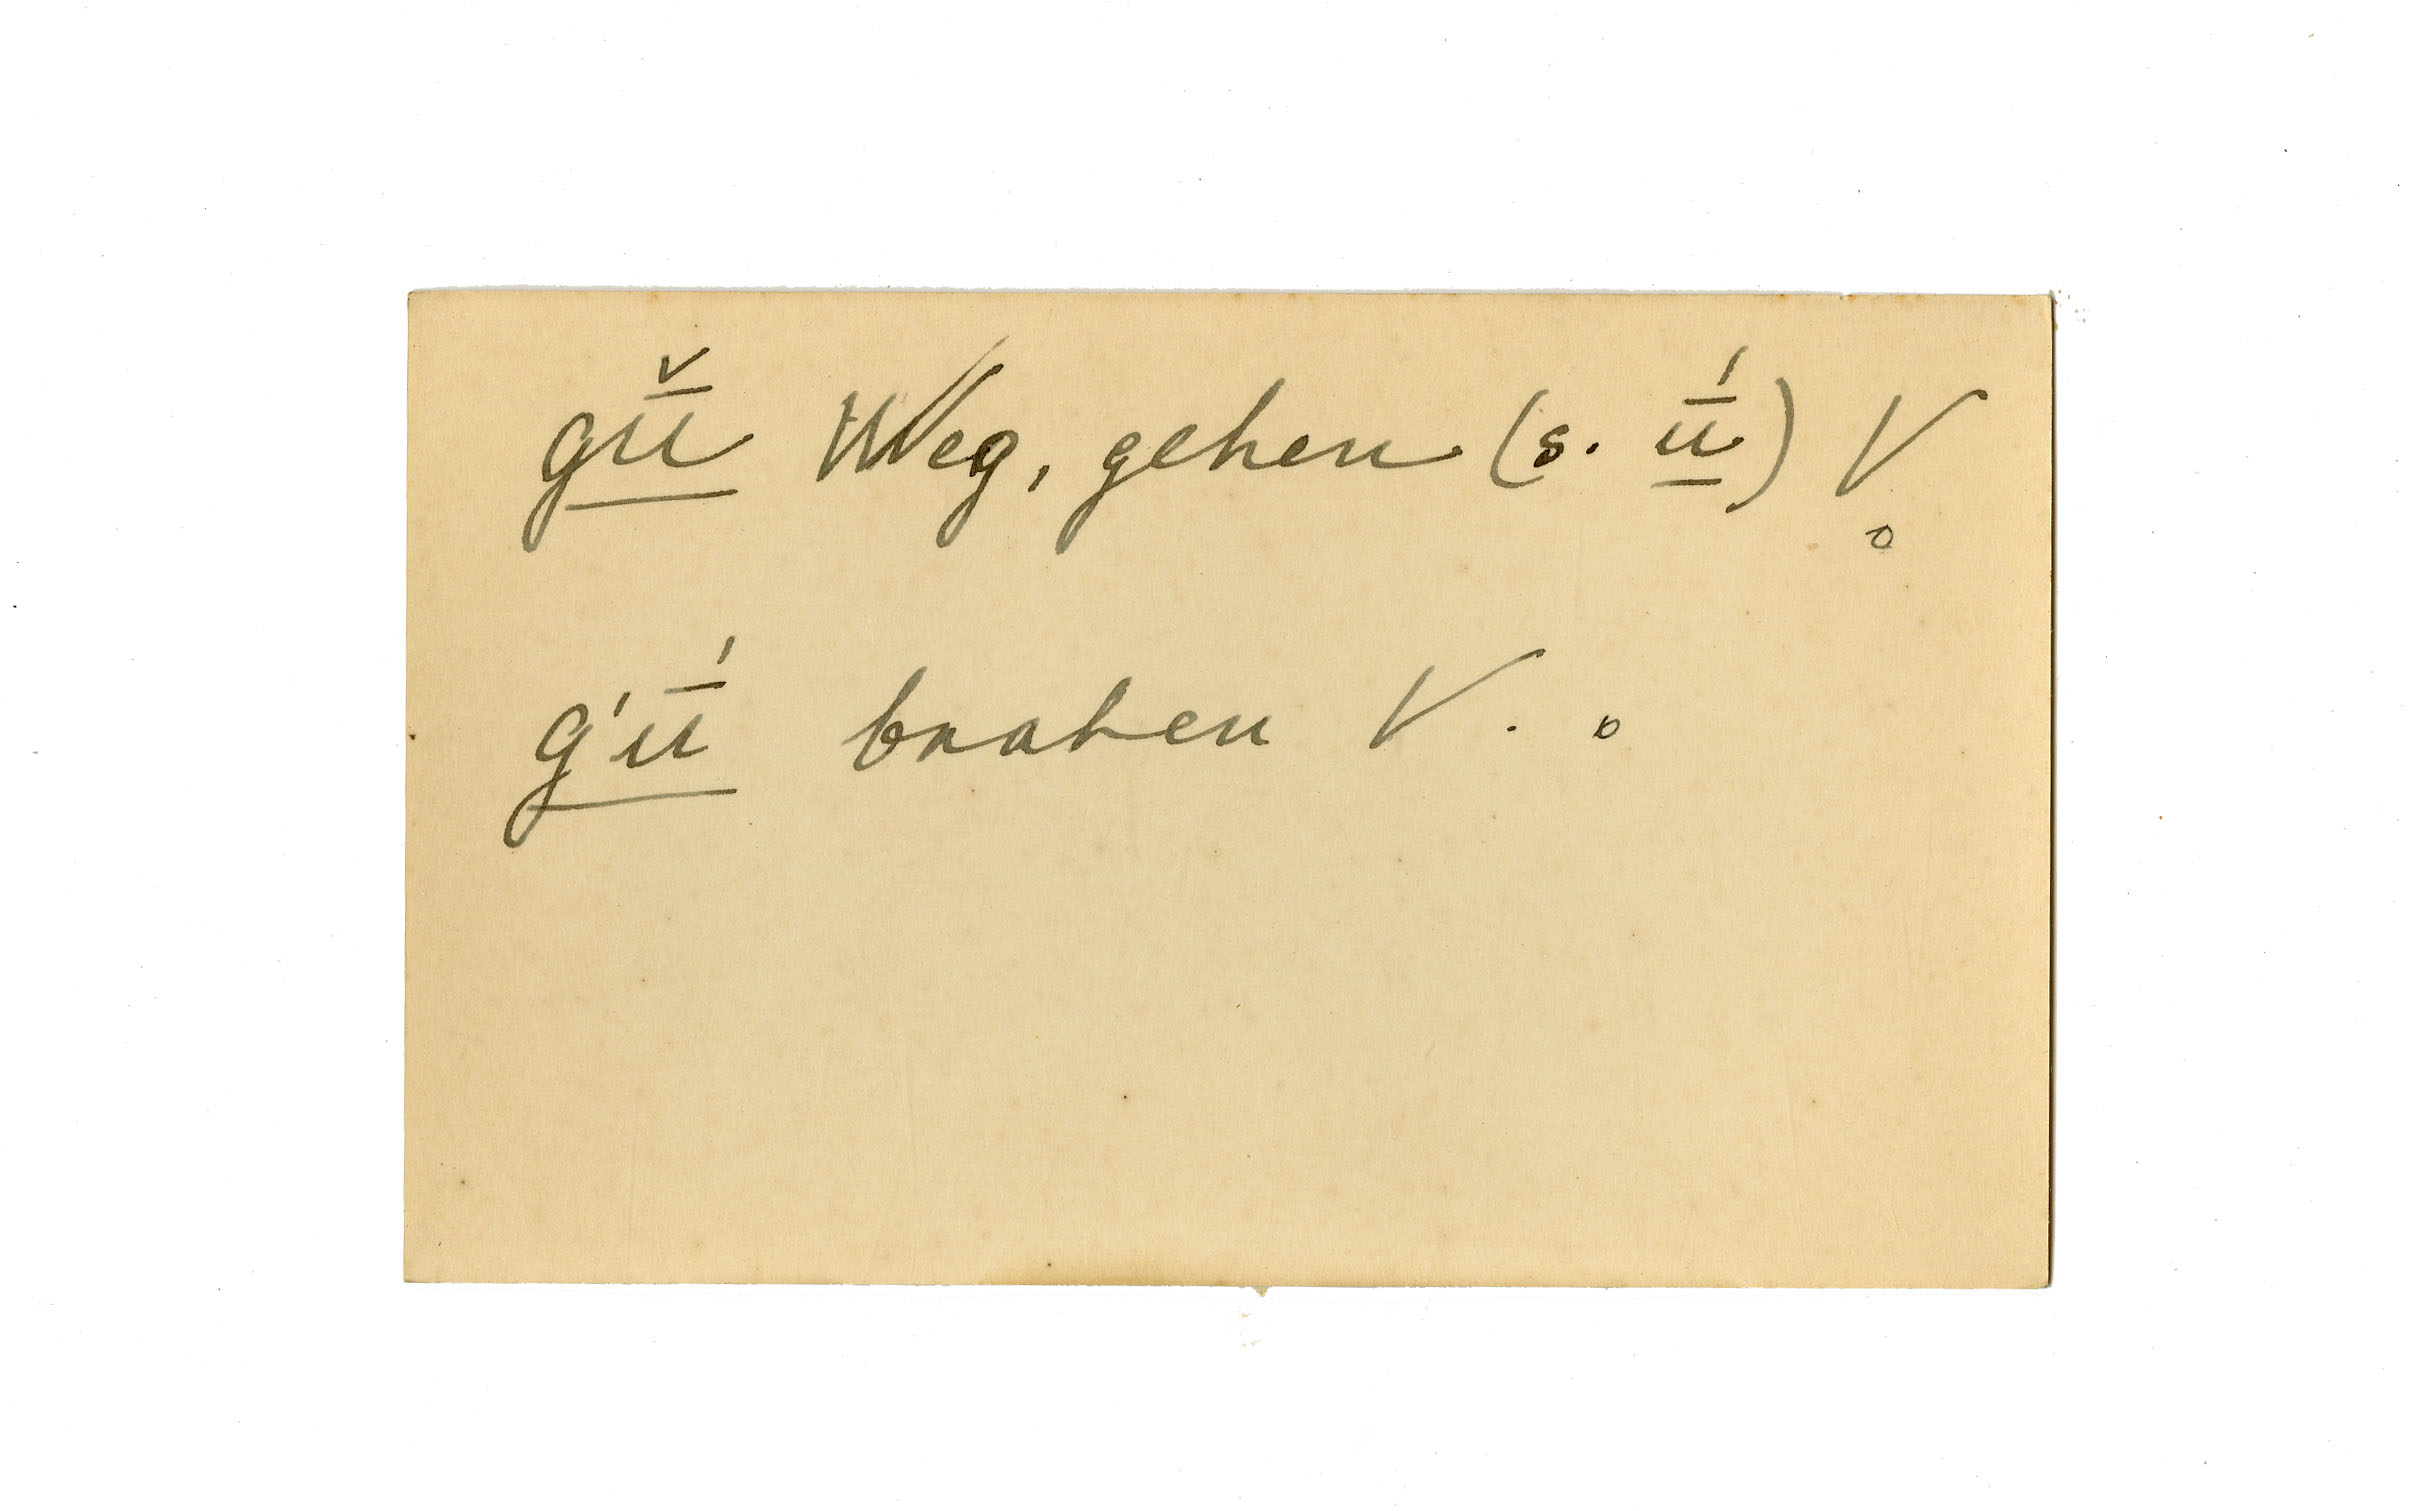 gū̌ Weg, gehen (s. ū́) V.
g'ū́ braten V.